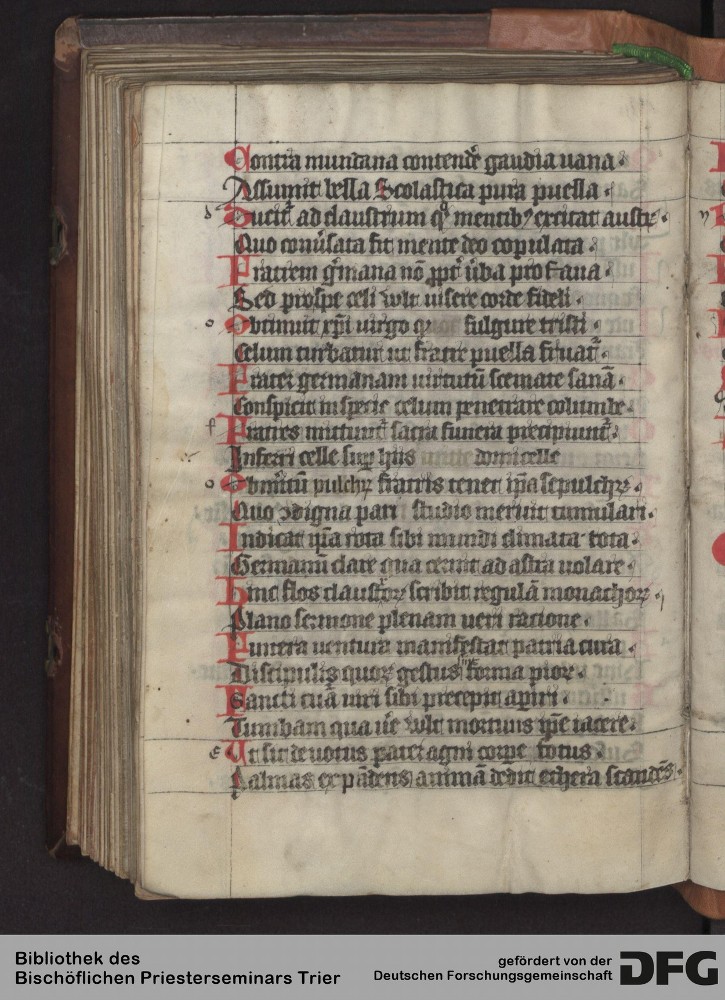 Contra mundana contendē gaudia uana
Assumit bella Scolastica pura puella
Ducit᷑ ad claustrum qͦ mentibꝰ excitat austrū
Quo conuͥsata fit mente deo copulata
Fratrem gͥmana nō ꝓpt᷑ uͥba profana
Sed prospe celi wlt uisere corde fideli
Obtinuit xp̄i uirgo fulgure tristi
Celum turbatur ut fratre puella fruat᷑
Frater germanam uirtutū scemate sanā
Conspicit in specie celum penetrare columbe
Fratres mittunt᷑ sacra funera precipiunt᷑
Inferri celle suꝑ hijs domicelle
Obuitū pulchꝝ fratris tenet ip̄a sepulchꝝ
Quo ꝯdigna pari studio meruit tumulari
Indicat ip̄a rota sibi mundi climata tota
Germanū clare qua cernit ad astra uolare
Hinc flos claustroꝝ scribit regulā monachoꝝ
Plano sermone plenam ueri racione
Funera uentura manifestat patria cura
Discipulis quoꝝ gestus forma pioꝝ
Sancti cuā uiri sibi precepit aꝑiri
Tumbam qua ue wlt mortuus ip̄e iacere
Ut sit deuotus paret agni corpe totus
Palmas expādens animā dedit ethera scandēs
Bibliothek des
Bischöflichen Priesterseminars Trier
gefördert von der
Deutschen Forschungsgemeinschaft
DFG